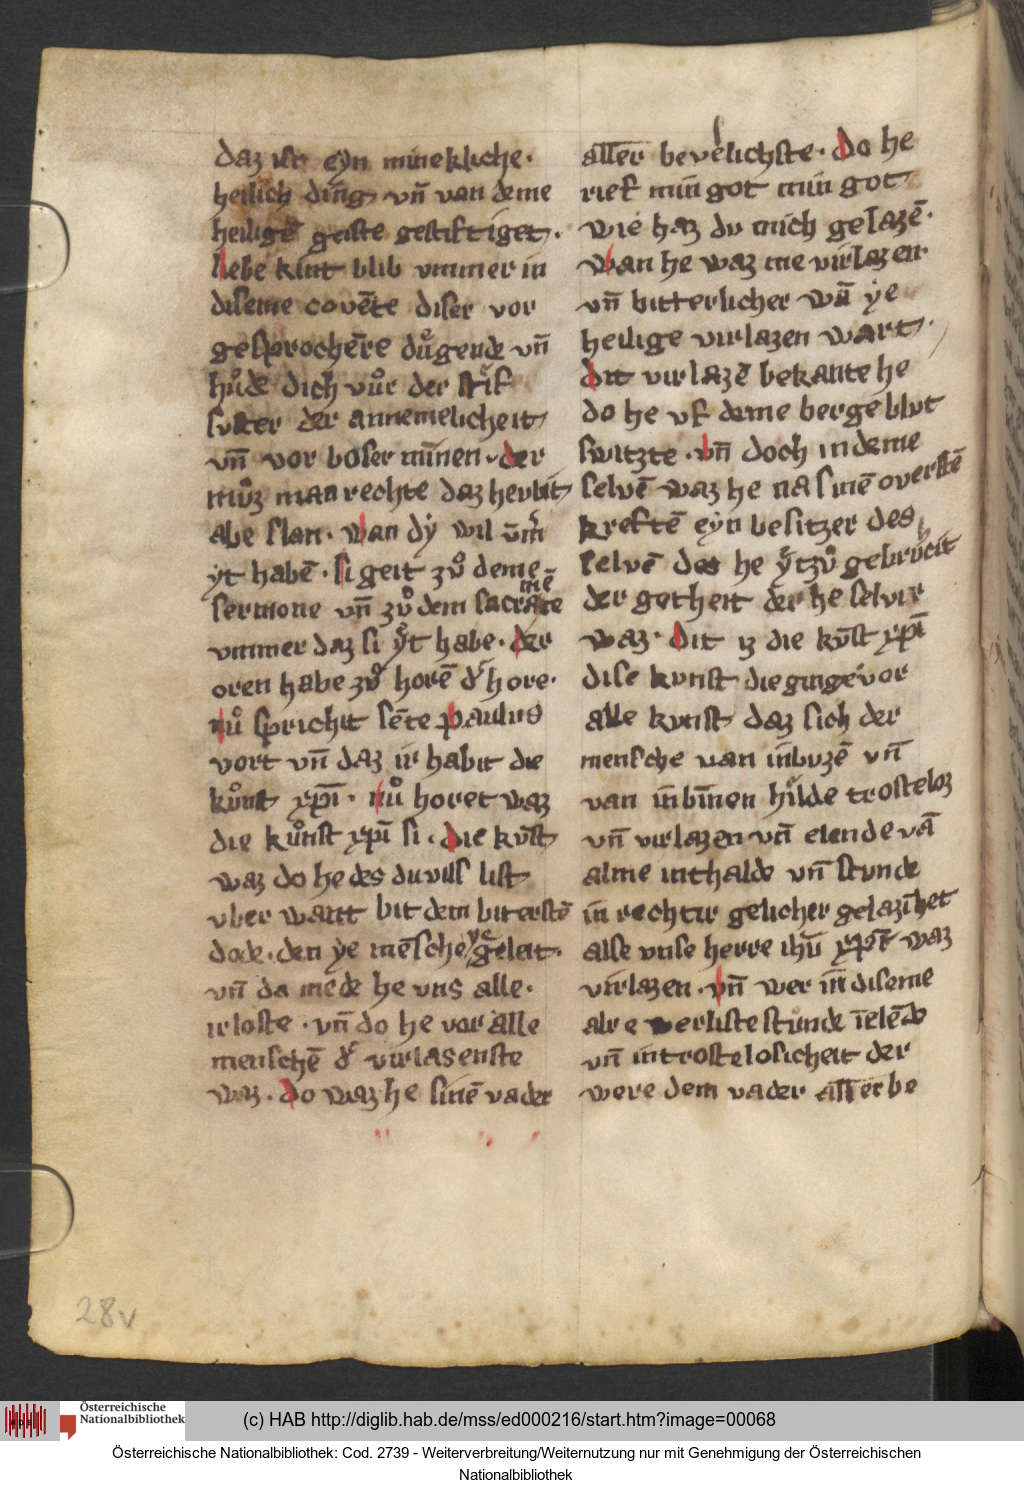 daz ist eyn mineklıche·
heilich dīng vn̄ van deme
heiligē geiste gestiftiget·
liebe kint blib vmmer in
diseme covēte diser vor
gesprochēre duͦgende vn̄
huͦde dich vuͦr der stif
suster der annemelicheit
vn̄ vor boser mīnen· der
muͦz man rechte daz heubit
abe slan· wan dẏ wil
ẏt habē· si geit zuͦ deme
sermone vn̄ zuͦ dem sacramēte
vmmer daz si ẏt habe· der
oren habe zuͦ horē d' hore·
nuͦ sprichit sēte paulus
vort vn̄ daz ir habit die
kuͦnst xp̄i· nuͦ horet waz
die kuͦnst xp̄i si· die kūst
waz do he des duvils list
vber want bit dem biterstē
dode· den ẏe mēsche geleit·
vn̄ da mēde he vns alle·
irloste· vn̄ do he vor alle
menschē d' virlasenste
waz· do waz he sinē vader
aller bevelichste· do he
rief min got min got
wie haz du mich gelazē·
wan he waz ie virlazen
vn̄ bitterlicher wā ẏe
heilige virlazen wart·
dit virlazē bekante he
do he vf deme berge blut
switzte· vn̄ doch in deme
selvē waz he na sinē overstē
kreftē eyn besitzer des
selvē des he ẏtzuͦ gebruͦcit
der getheit der he selvir
waz· dit iz die kūst xp̄i
dise kunst die ginge vor
alle kunst daz sich der
mensche van inbuzē vn̄
van īnbīnen hilde trosteloz
vn̄ virlazen vn̄ elende vā
alme inthalde vn̄ stunde
in rechtir gelicher gelazīhet
alse vnse herre ihū xp̄c waz
virlazen· vn̄ wer in diseme
alre werliste stunde ī elēde
vn̄ in trostelosicheit der
were dem vader aller be
28v
Österreichische
Nationalbibliothek
(c) HAB http://diglib.hab.de/mss/ed000216/start.htm?image=00068
Österreichische Nationalbibliothek: Cod. 2739 - Weiterverbreitung/Weiternutzung nur mit Genehmigung der Österreichischen
Nationalbibliothek